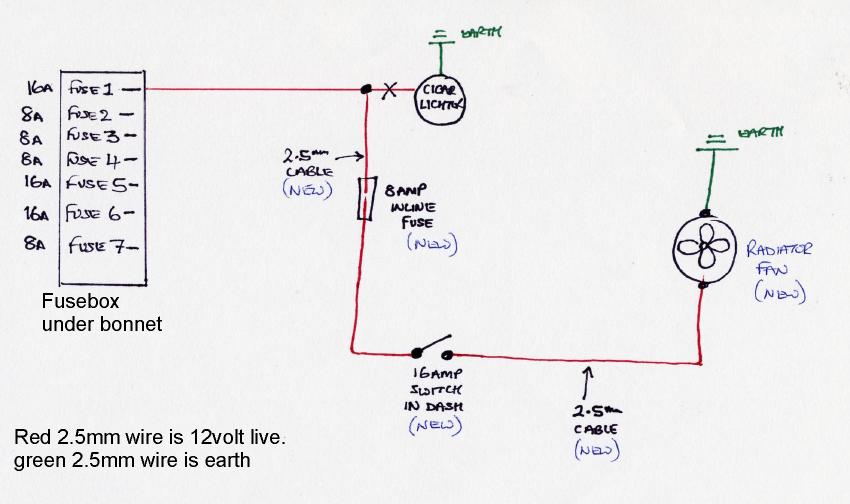 EARTH
16A FUSE 1 —
8A FUSE 2 —
8A FUSE 3 —
8A FUSE 4 —
16A FUSE 5 —
16A FUSE 6 —
8A FUSE 7 —
Fusebox
under bonnet
CIGAR
LIGHTER
2.5mm
CABLE
(NEW)
8 AMP
INLINE
FUSE
(NEW)
EARTH
RADIATOR
FAN
(NEW)
16 AMP
SWITCH
IN DASH
(NEW)
2.5mm
CABLE
(NEW)
Red 2.5mm wire is 12volt live.
green 2.5mm wire is earth